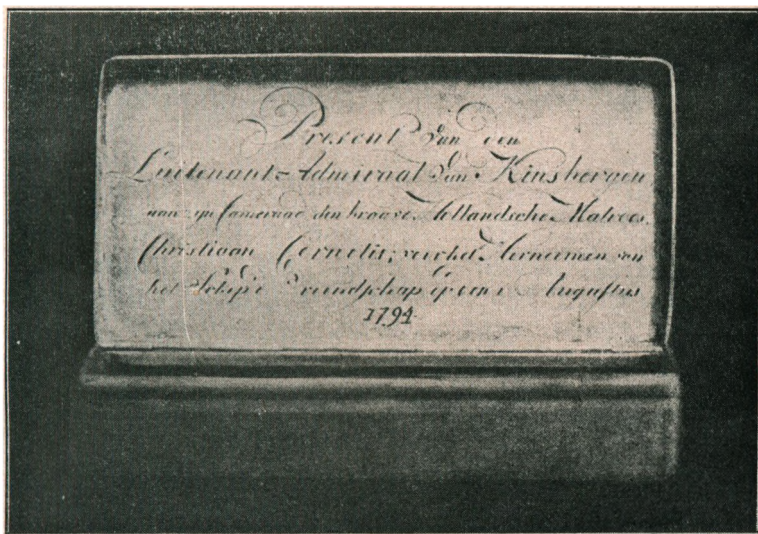 Present Van den
Luitenant-Admiraal Van Kinsbergen
aan zyn Cameraad den braave Hollandsche Matroos,
Christiaan Cornelis, voor het Herneemen van
het Schip Vriendschap op den Augustus
1794